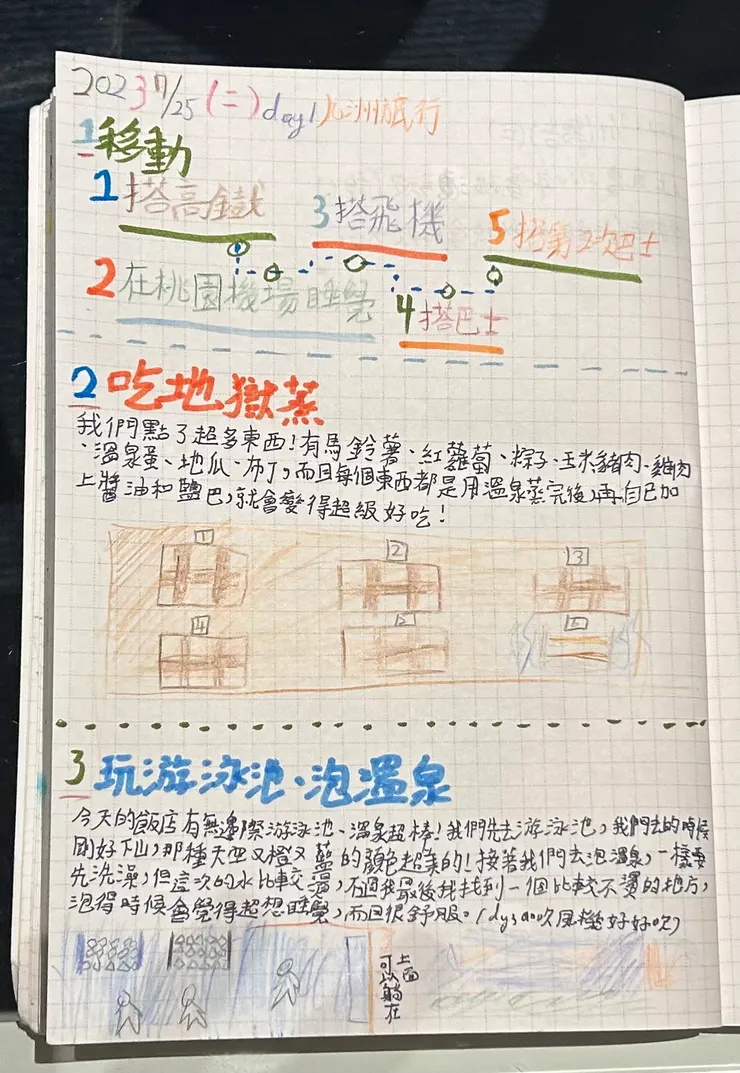 2023 7/25 (二) day1 九洲旅行
1 移動
1 搭高鐵
3 搭飛機
5 搭第2次巴士
2 在桃園機場睡覺
4 搭巴士
2 吃地獄蒸
我們點了超多東西!有馬鈴薯、紅蘿蔔、粽子、玉米豬肉、雞肉
、溫泉蛋、地瓜、布丁,而且每個東西都是用溫泉蒸完後,再自己加
上醬油和鹽巴,就會變得超級好吃!
1
2
3
4
5
6
3 玩游泳池、泡溫泉
今天的飯店有無邊際游泳池、溫泉超棒!我們先去游泳池,我們去的時候
剛好下山,那種天空又橙又藍的顏色超美的!接著我們去泡溫泉,一樣要
先洗澡,但這次的水比較溫,不過我最後找到一個比較不燙的地方,
泡得時候會覺得超想睡覺,而且很舒服。(dysan吹風機好好吹)
上面
可以躺在